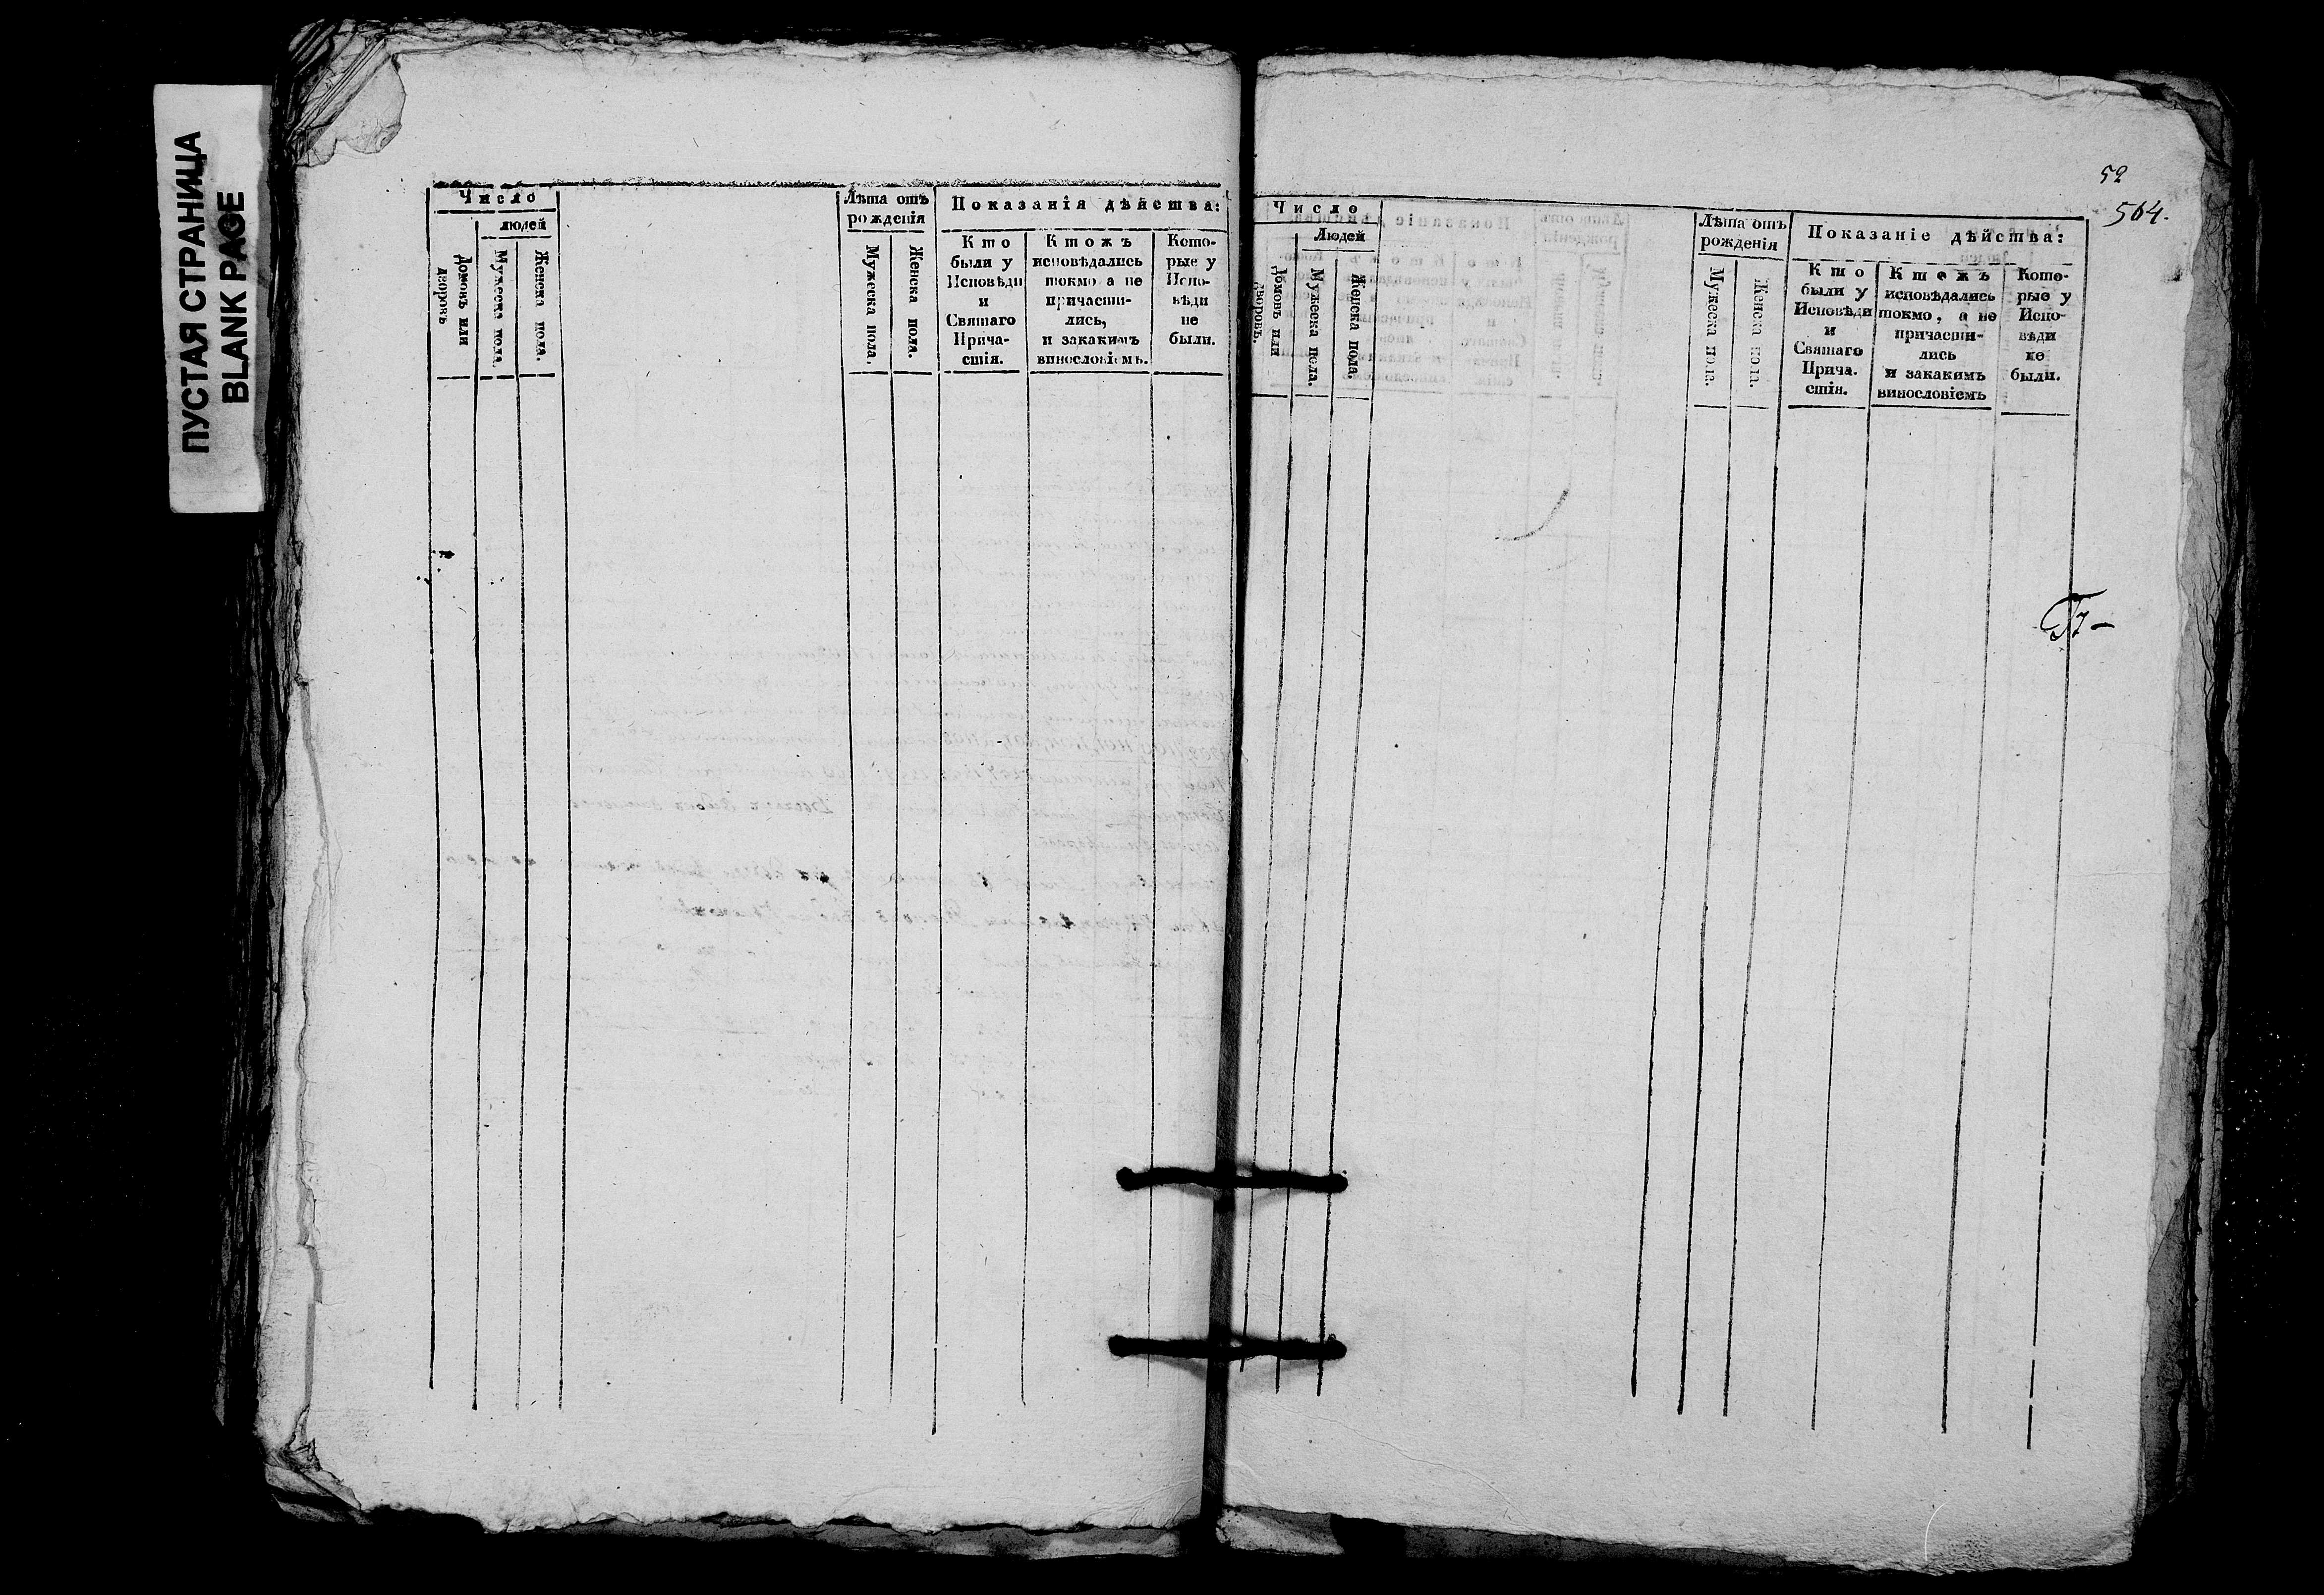 ПУСТАЯ СТРАНИЦА
BLANK PAGE
Число
людей
Домовъ или дворовъ
Мужеска пола.
Женска пола.
Лѣта отъ
рожденія
Мужеска пола.
Женска пола.
Показанія дѣйства:
Кто
были у
Исповѣди
и
Святаго
Прича-
стія.
Ктожъ
исповѣдались
токмо а не
причасти-
лись,
и закакимъ
винословіемъ.
Кото-
рые у
Испо-
вѣди
не
были.
52
564.
Число
Людей
Домовъ или дворовъ.
Мужеска пола.
Женска пола.
Лѣта отъ
рожденія
Мужеска пола.
Женска пола.
Показаніе дѣйства:
Кто
были у
Исповѣди
и
Святаго
Прича.
стія.
Ктожъ
исповѣдались
токмо, а не
причасти-
лись
и закакимъ
винословіемъ
Кото-
рые у
Испо-
вѣди
не
были.